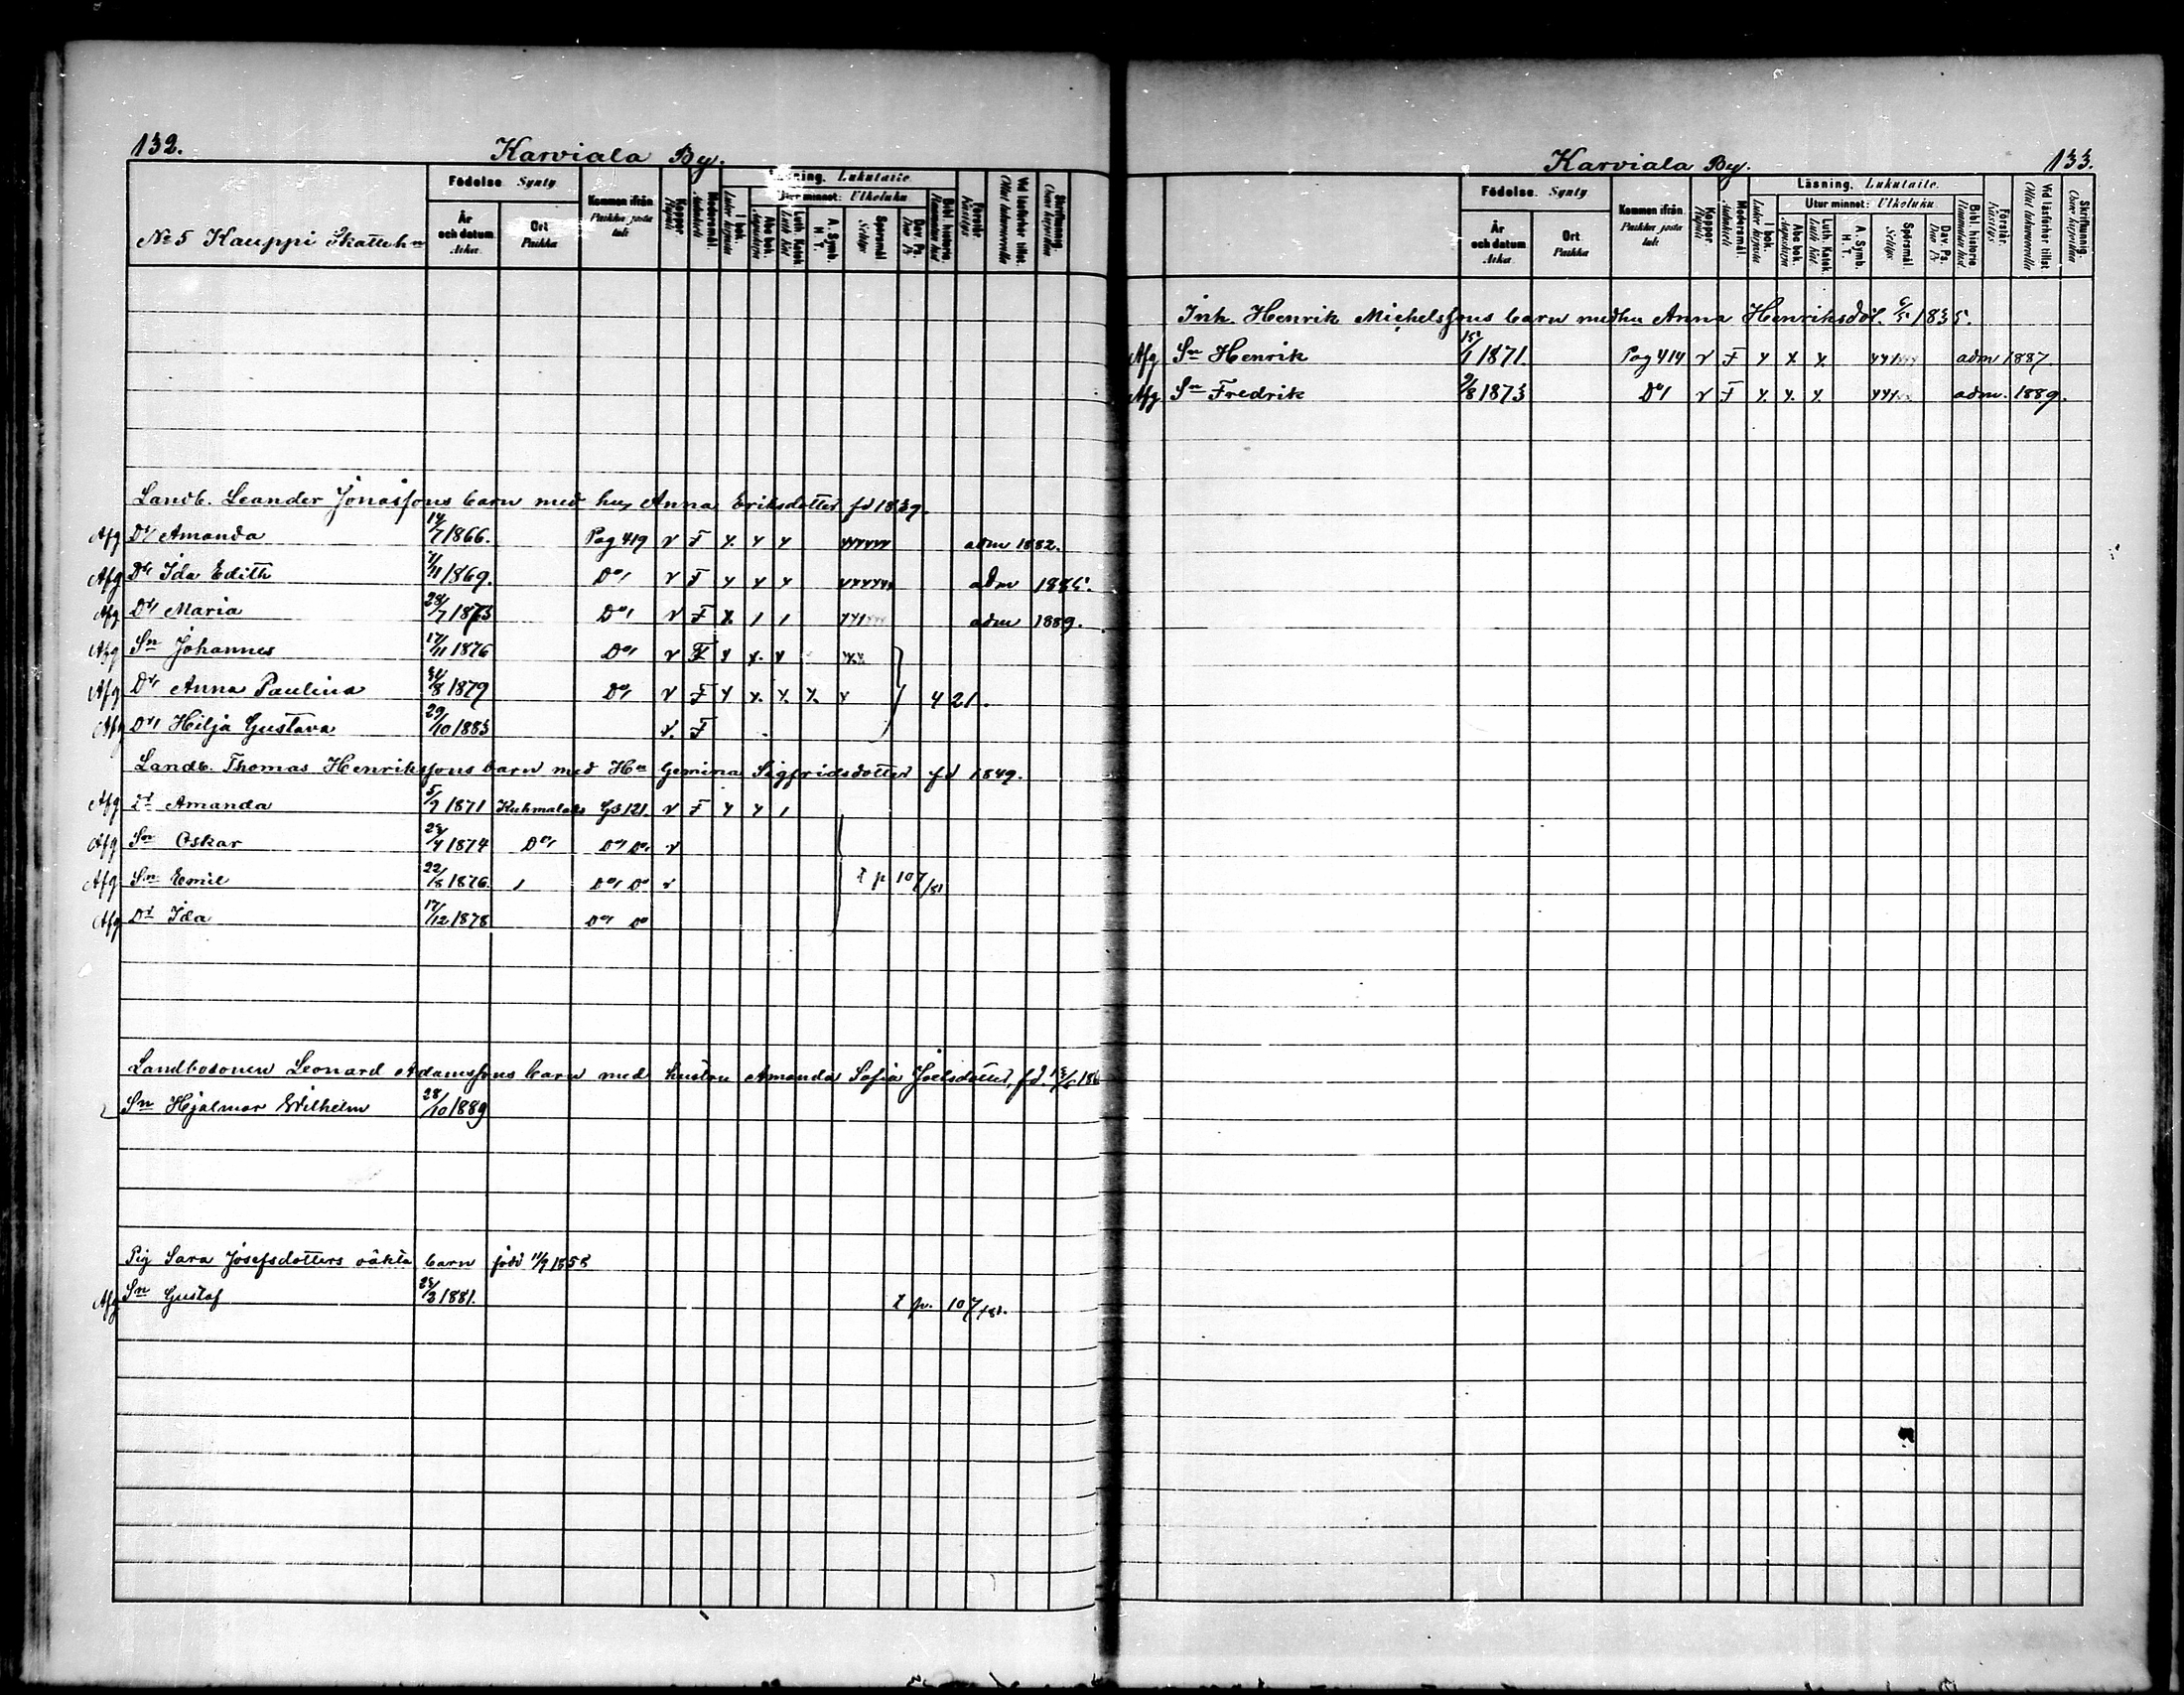 132.
Karviala By.
Nº 5 Kauppi Skatteh
Födelse. Synty
År och datum. Aika.
Ort Paikka
Kommen ifrån Paikka josta tuli
Koppor Rupuli
Modersmål.
Läsning. Lukutaito.
I bok.
Utur minnet: Ulkoluku
Abc bok.
Luth. Katek.
A. Symb. H. T.
Spörsmål
Dav. Ps.
Bibl. historie.
Förstår. Käsitys
Vid läsförhör tillst.
Skriftkunnig.
Landb. Leander Jonassons barn med hu Anna Eriksdotter fd 1839.
Afg Dr Amanda 14/7 1866. Pag 419 v F x x x adm 1882.
Afg Dr Ida Edith 7/11 1869. Do v F x x x adm
Afg Dr Maria 28/7 1873 Do v F x 1 1 adm 1889.
Afg Sn Johannes 17/11 1876 Do v F x x x
Afg Dr Anna Paulina 31/8 1879 Do v F x x x x x 421.
Afg Dr Hilja Gustava 29/10 1883 v. F
Landb. Thomas Henrikssons barn med Hu Gemina Sigfridsdotter fd 1849.
Afg Dr Amanda 5/7 1871 Kuhmalaks Gs 121. v F x x 1
Afg Sn Oskar 1874 Do Do Do v
Afg Sn Emil 22/8 1876. Do Do v p 107/81
Afg Dr Ida 17/12 1878 Do Do
Landbosonen Leonard Adamssons barn med hustru Amanda Sofia Joelsdotter, fd.
Sn Hjalmar Wilhelm 28/10 1889
Pig Sara Josefsdotters oäkta barn född 11/9 1858
Afg Sn Gustaf 1881. p. 107/81.
Karviala By.
133.
Födelse. Synty
År och datum Aika.
Ort Paikka
Kommen ifrån Paikka josta tuli
Koppor Rupuli
Modersmål.
Läsning. Lukutaito.
I bok.
Utur minnet: Ulkoluku.
Abc bok.
Luth. Katek.
A. Symb. H. T.
Spörsmål
Dav. Ps.
Bibl. historie.
Förstår. Käsitys
Vid läsförhör tillst.
Skriftkunnig.
Inh. Henrik Michelssons barn med hu Anna Henriksdot. 1835.
Afg Sn Henrik 15/1 1871. Pag 414 v F x x x adm 1887.
Afg Sn Fredrik 9/8 1873 Do v F x x x adm. 1889.